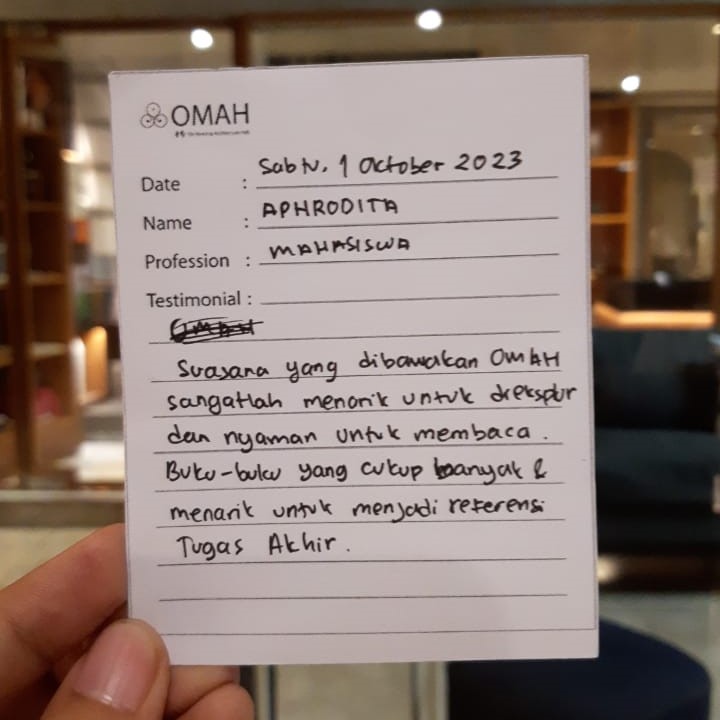 OMAH
Date : Sabtu, 1 October 2023
Name : APHRODITA
Profession : MAHASISWA
Testimonial :
Suasana yang dibawakan OMAH
sangatlah menarik untuk dieksplor
dan nyaman untuk membaca.
Buku-buku yang cukup banyak &
menarik untuk menjadi referensi
Tugas Akhir.